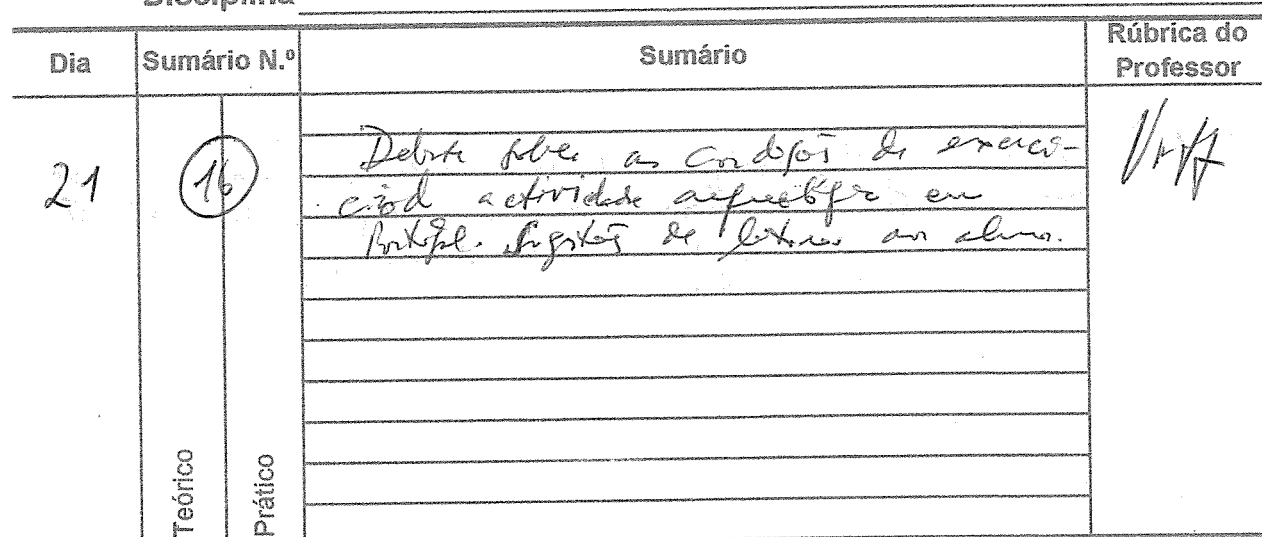 Disciplina
Dia
Sumário N.º
Sumário
Rúbrica do
Professor
21
16
Debate sobre as condições de exercí-
cio d actividade em
Portugal. Sugestões de leituras aos alunos.
Teórico
Prático